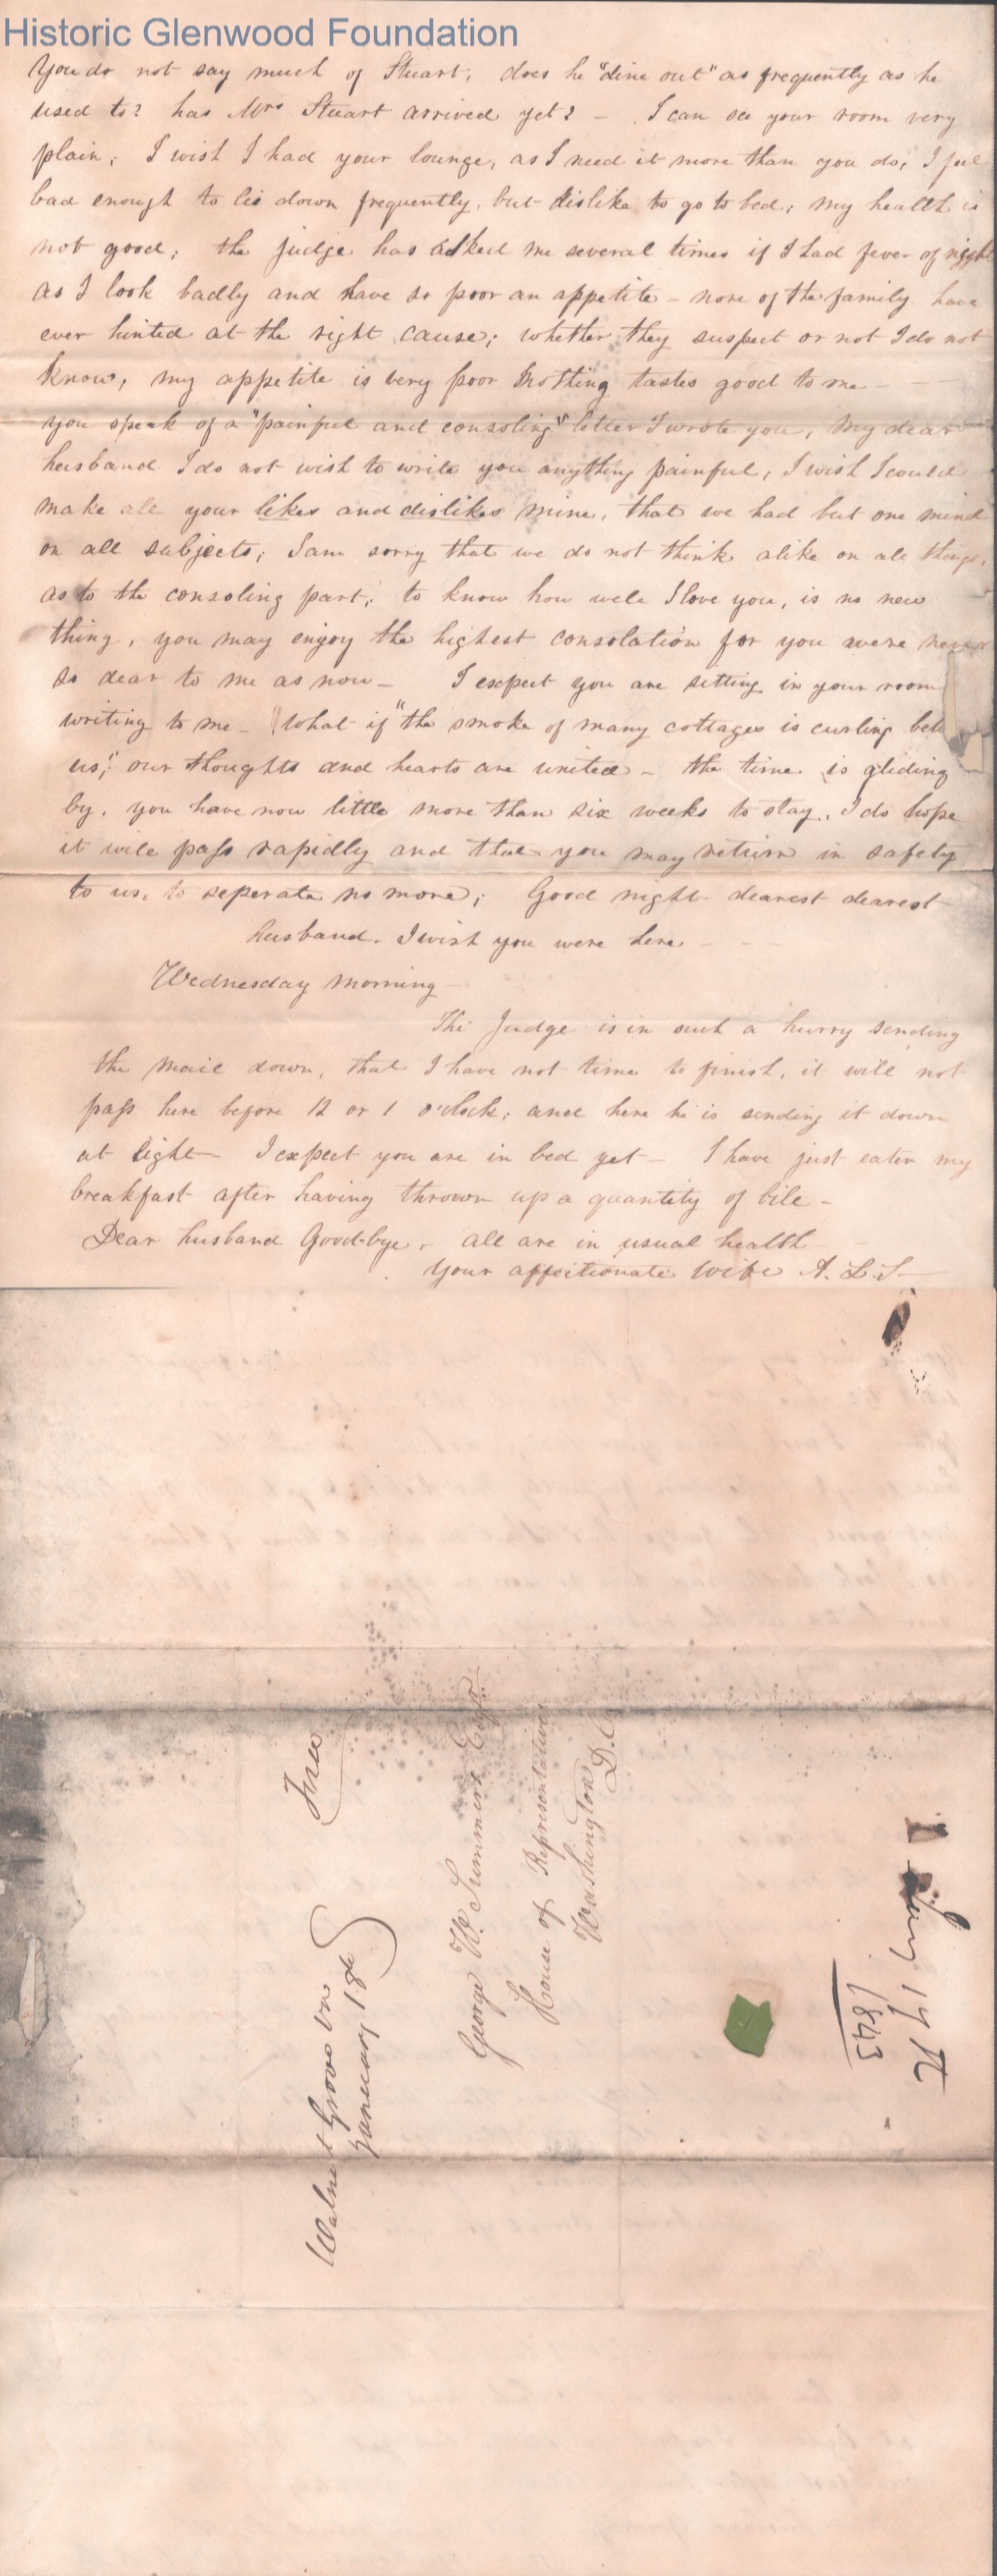 Historic Glenwood Foundation
You do not say much of Stuart, does he "dine out" as frequently as he
used to? has Mrs Stuart arrived yet? - I can see your room very
plain, I wish I had your lounge, as I need it more than you do, I feel
bad enough to lie down frequently, but dislike to go to bed; my health is
not good; the judge has asked me several times if I had fever of night
as I look badly and have so poor an appetite - none of the family have
ever hinted at the right cause; whether they suspect or not I do not
know, my appetite is very poor nothing tastes good to me -
you speak of a "painful and consoling" letter I wrote you, my dear
husband I do not wish to write you anything painful, I wish I could
make all your likes and dislikes mine, that we had but one mind
on all subjects; I am sorry that we do not think alike on all things,
as to the consoling part; to know how well I love you, is no new
thing, you may enjoy the highest consolation for you were never
so dear to me as now - I expect you are sitting in your room
writing to me - What if "the smoke of many cottages is curling
us," our thoughts and hearts are united - the time is gliding
by, you have now little more than six weeks to stay, I do hope
it will pass rapidly and that you may return in safety
to us, to seperate no more; Good night dearest dearest
husband. I wish you were here - - -
Wednesday morning
The Judge is in such a hurry sending
the mail down, that I have not time to finish, it will not
pass here before 12 or 1 o'clock; and here he is sending it down
at light - I expect you are in bed yet - I have just eaten my
breakfast after having thrown up a quantity of bile -
Dear husband Good-bye, - all are in usual health
Your affectionate wife A. L. S -
Walnut Grove Va
January 18th
Free
George W. Summers Esqr.
House of Representatives
Washington
D.C
Jany 17th
1843